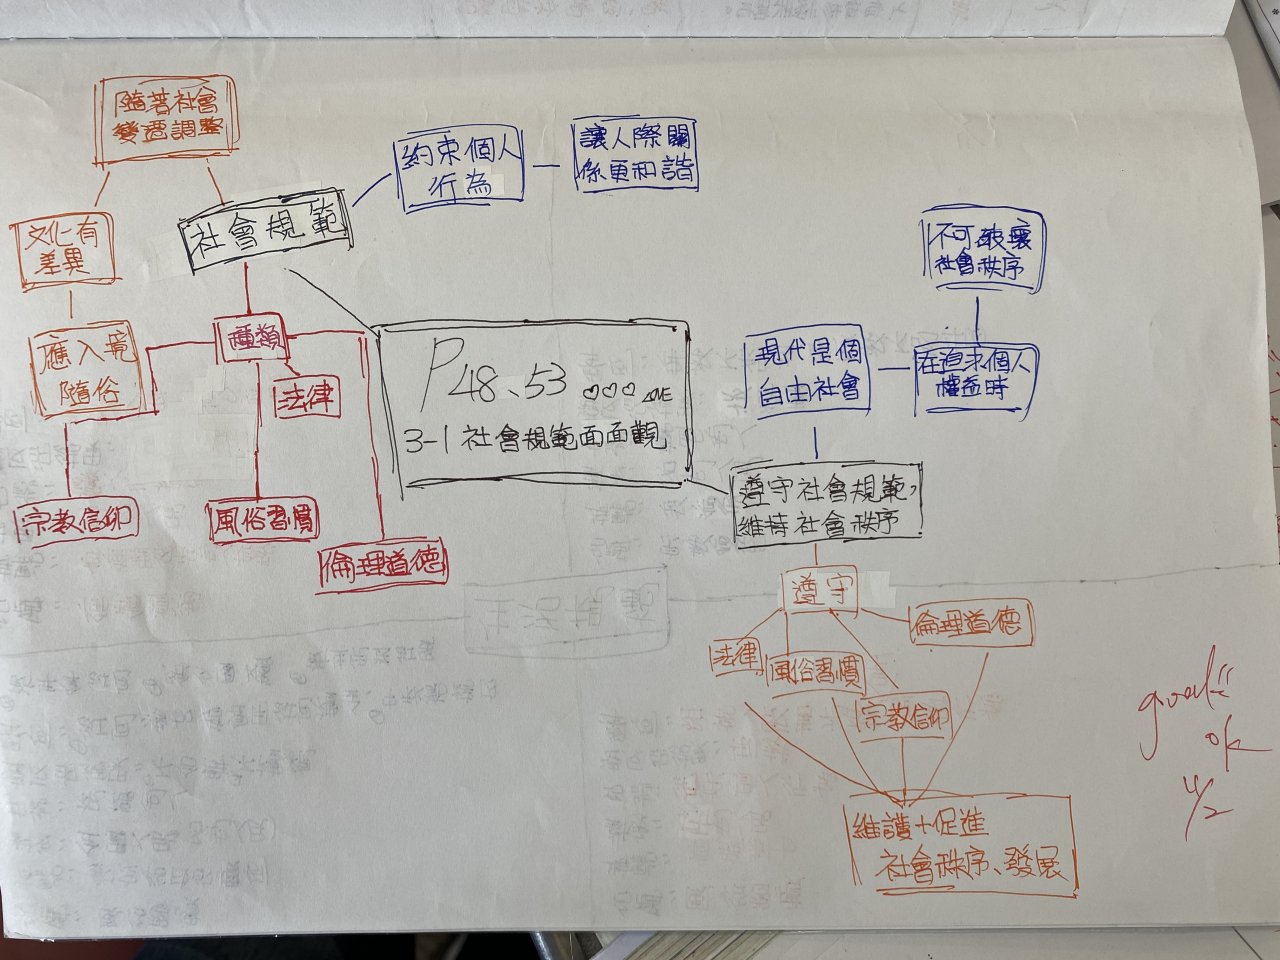 隨著社會
變遷調整
約束個人
行為
讓人際關
係更和諧
社會規範
文化有
差異
不可破壞
社會秩序
種類
應入境
隨俗
法律
P48、53 ♡♡♡ LOVE
3-1 社會規範面面觀
現代是個
自由社會
在追求個人
權益時
宗教信仰
風俗習慣
倫理道德
遵守社會規範,
維持社會秩序
遵守
倫理道德
法律
風俗習慣
宗教信仰
維護+促進
社會秩序、發展
good!!
ok
4/2